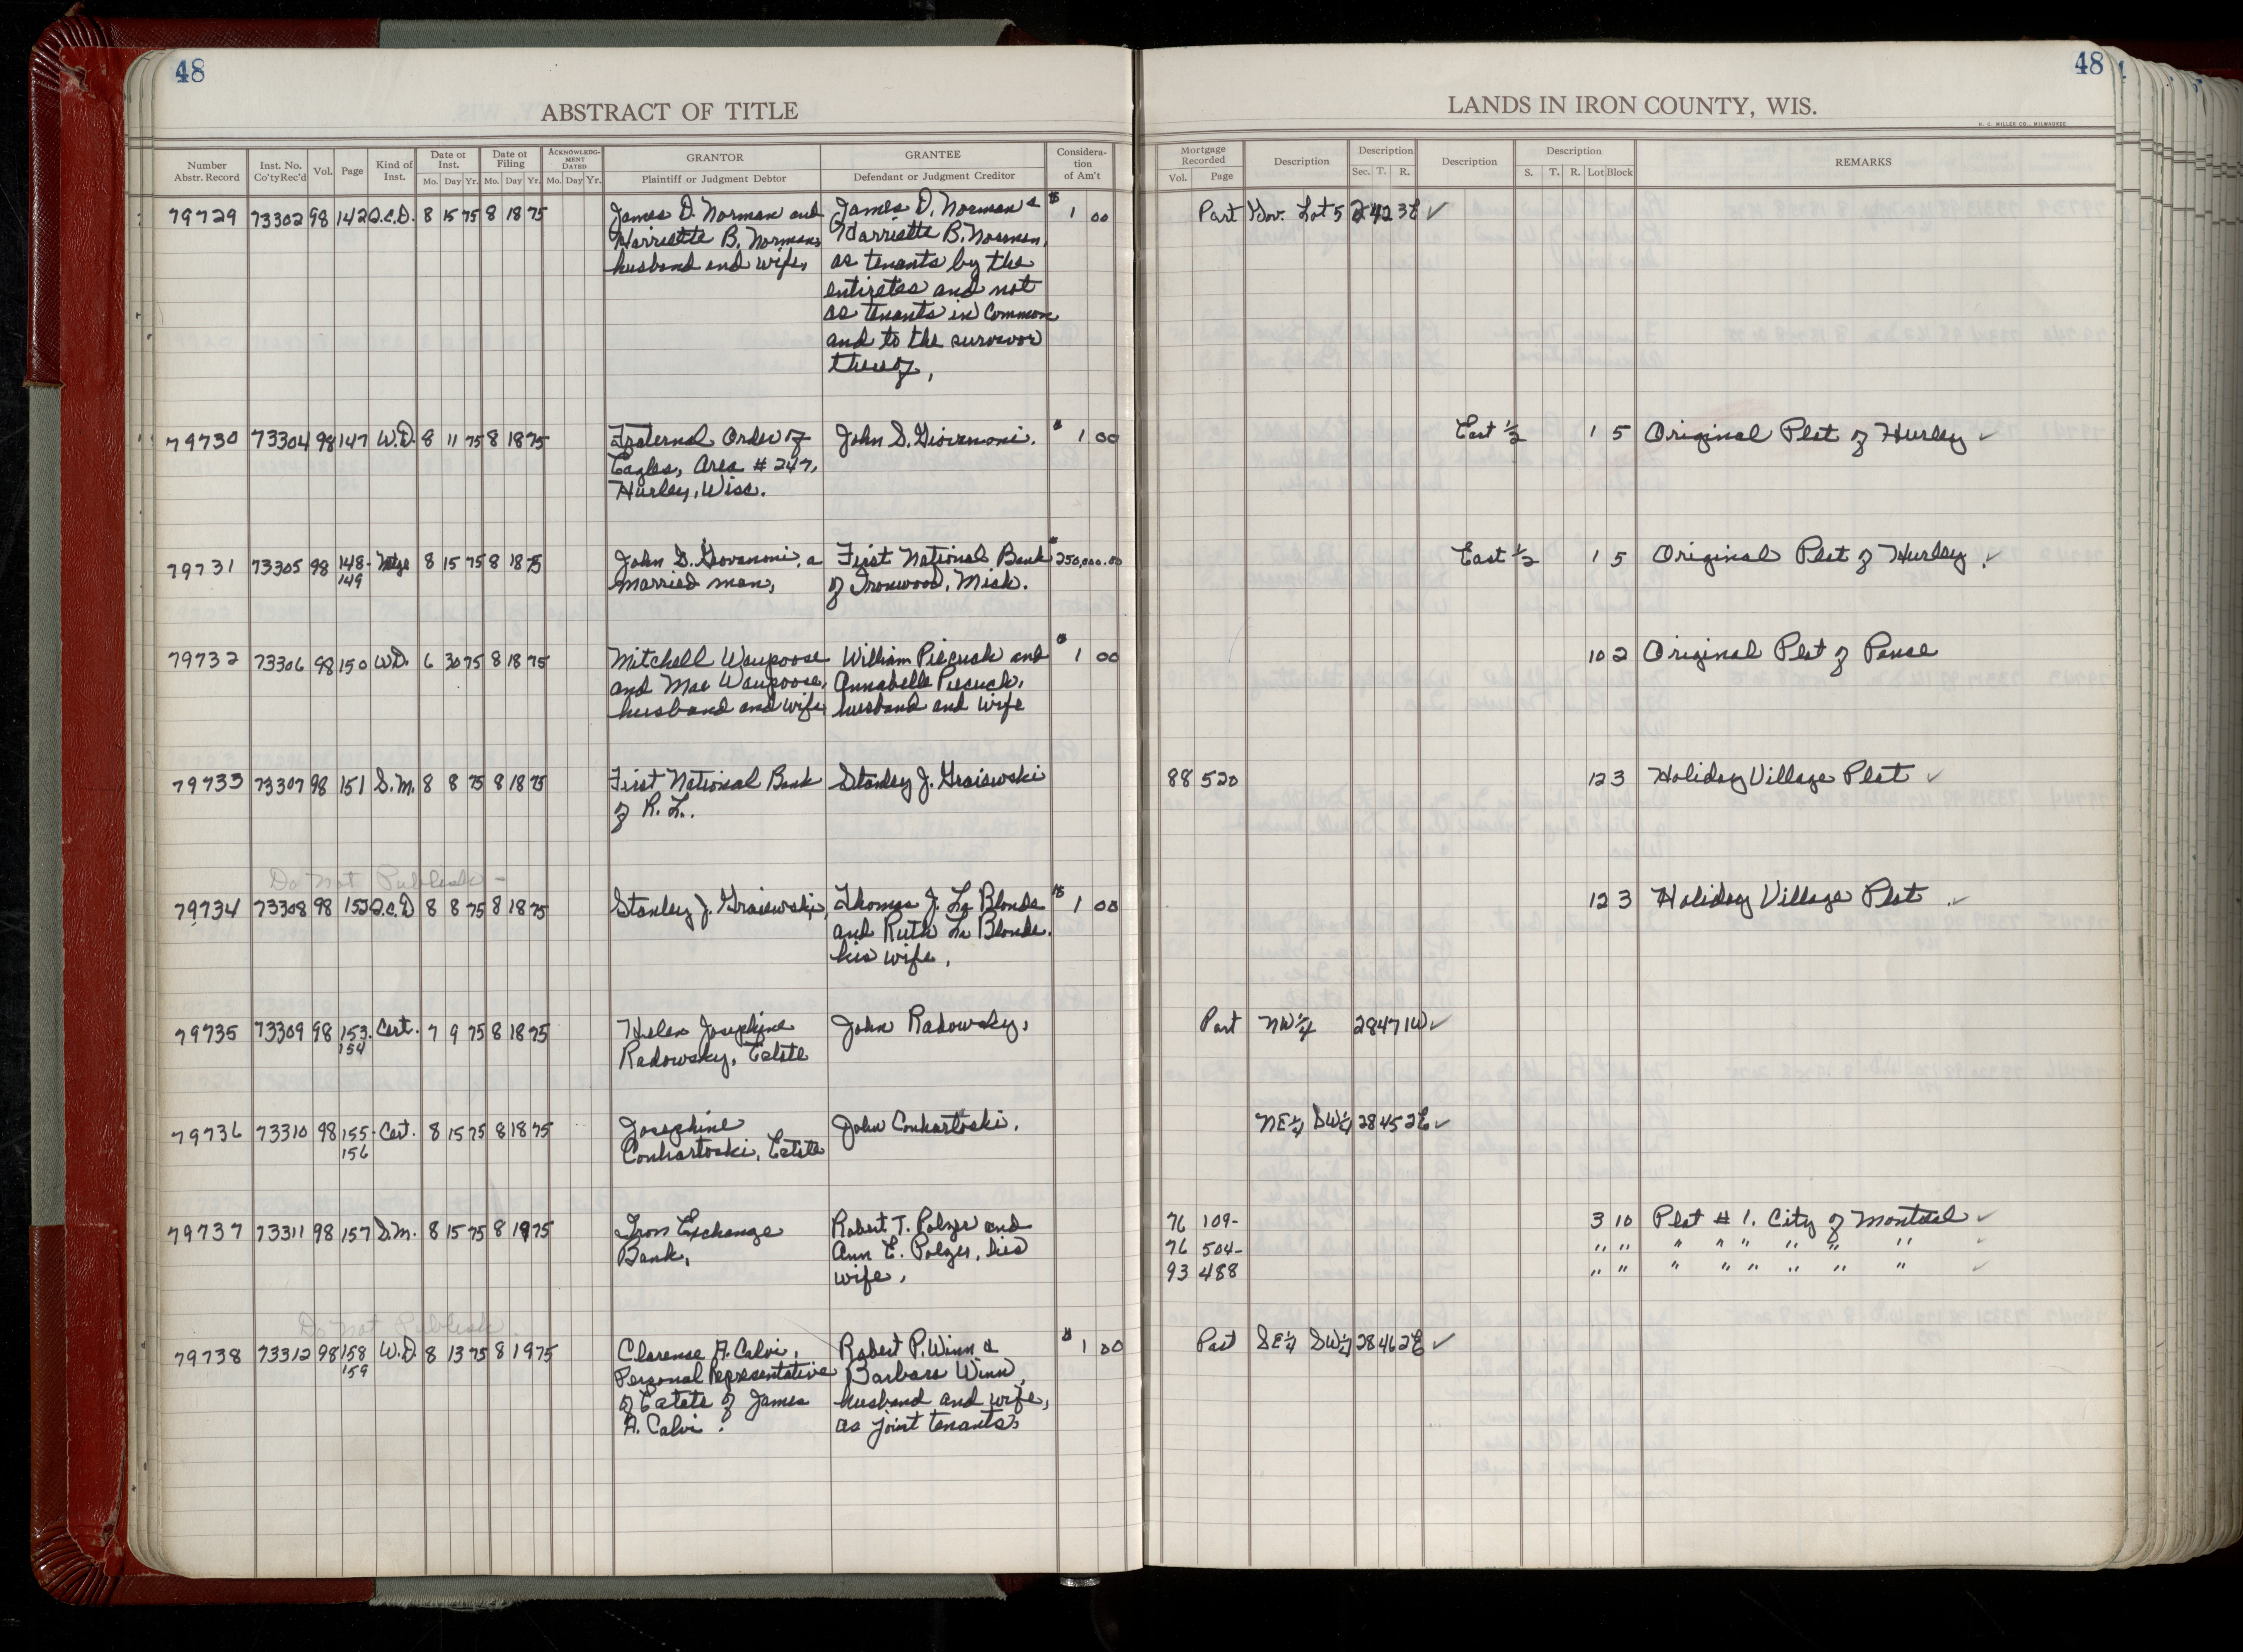 48
48
ABSTRACT OF TITLE
LANDS IN IRON COUNTY, WIS.
H. C. MILLER CO., MILWAUKEE
Number Abstr. Record | Inst. No. Co'ty Rec'd | Vol. | Page | Kind of Inst. | Date of Inst. Mo. Day Yr. | Date of Filing Mo. Day Yr. | ACKNOWLEDGMENT DATED Mo. Day Yr. | GRANTOR Plaintiff or Judgment Debtor | GRANTEE Defendant or Judgment Creditor | Consideration of Am't
Mortgage Recorded Vol. Page | Description | Description Sec. T. R. | Description | Description S. T. R. Lot Block | REMARKS
79729 73302 98 142 Q.C.D. 8 15 75 8 18 75 James D. Norman and James D. Norman & $ 1 00 Part Gov. Lot 5 2 42 3E ✓
Harriette B. Norman, Harriette B. Norman,
husband and wife, as tenants by the
entiretes and not
as tenants in common
and to the survivor
thereof,
79730 73304 98 147 W.D. 8 11 75 8 18 75 Fraternal Order of John S. Giovanoni. $ 1 00 East 1/2 1 5 Original Plat of Hurley ✓
Eagles, Area # 247,
Hurley, Wisc.
79731 73305 98 148- Mtge 8 15 75 8 18 75 John S. Giovanoni, a First National Bank $ 250,000.00 East 1/2 1 5 Original Plat of Hurley ✓
149 married man, of Ironwood, Mich.
79732 73306 98 150 W.D. 6 30 75 8 18 75 Mitchell Waupoose William Piecuch and $ 1 00 10 2 Original Plat of Pence
and Mae Waupoose, Annabelle Piecuch,
husband and wife husband and wife
79733 73307 98 151 S.M. 8 8 75 8 18 75 First National Bank Stanley J. Graiewski 88 520 12 3 Holiday Village Plat ✓
of R. L.
Do Not Publish -
79734 73308 98 152 Q.C.D 8 8 75 8 18 75 Stanley J. Graiewski, Thomas J. La Blonde $ 1 00 12 3 Holiday Village Plat ✓
and Ruth La Blonde,
his wife,
79735 73309 98 153- Cert. 7 9 75 8 18 75 Helen Josephine John Radowsky, Part NW1/4 28 47 1W ✓
154 Radowsky, Estate
79736 73310 98 155- Cert. 8 15 75 8 18 75 Josephine John Conhartoski. NE1/4 SW1/4 28 45 2E ✓
156 Conhartoski, Estate
79737 73311 98 157 S.M. 8 15 75 8 19 75 Iron Exchange Robert T. Polzer and 76 109- 3 10 Plat # 1. City of Montreal ✓
Bank, Ann E. Polzer, his 76 504- " " " " " " " " ✓
wife, 93 488 " " " " " " " " ✓
Do Not Publish
79738 73312 98 158 W.D 8 13 75 8 19 75 Clarence A. Calvi, Robert P. Winn & $ 1 00 Part SE1/4 SW1/4 28 46 2E ✓
159 Personal Representative Barbara Winn,
of Estate of James husband and wife,
A. Calvi. as joint tenants,